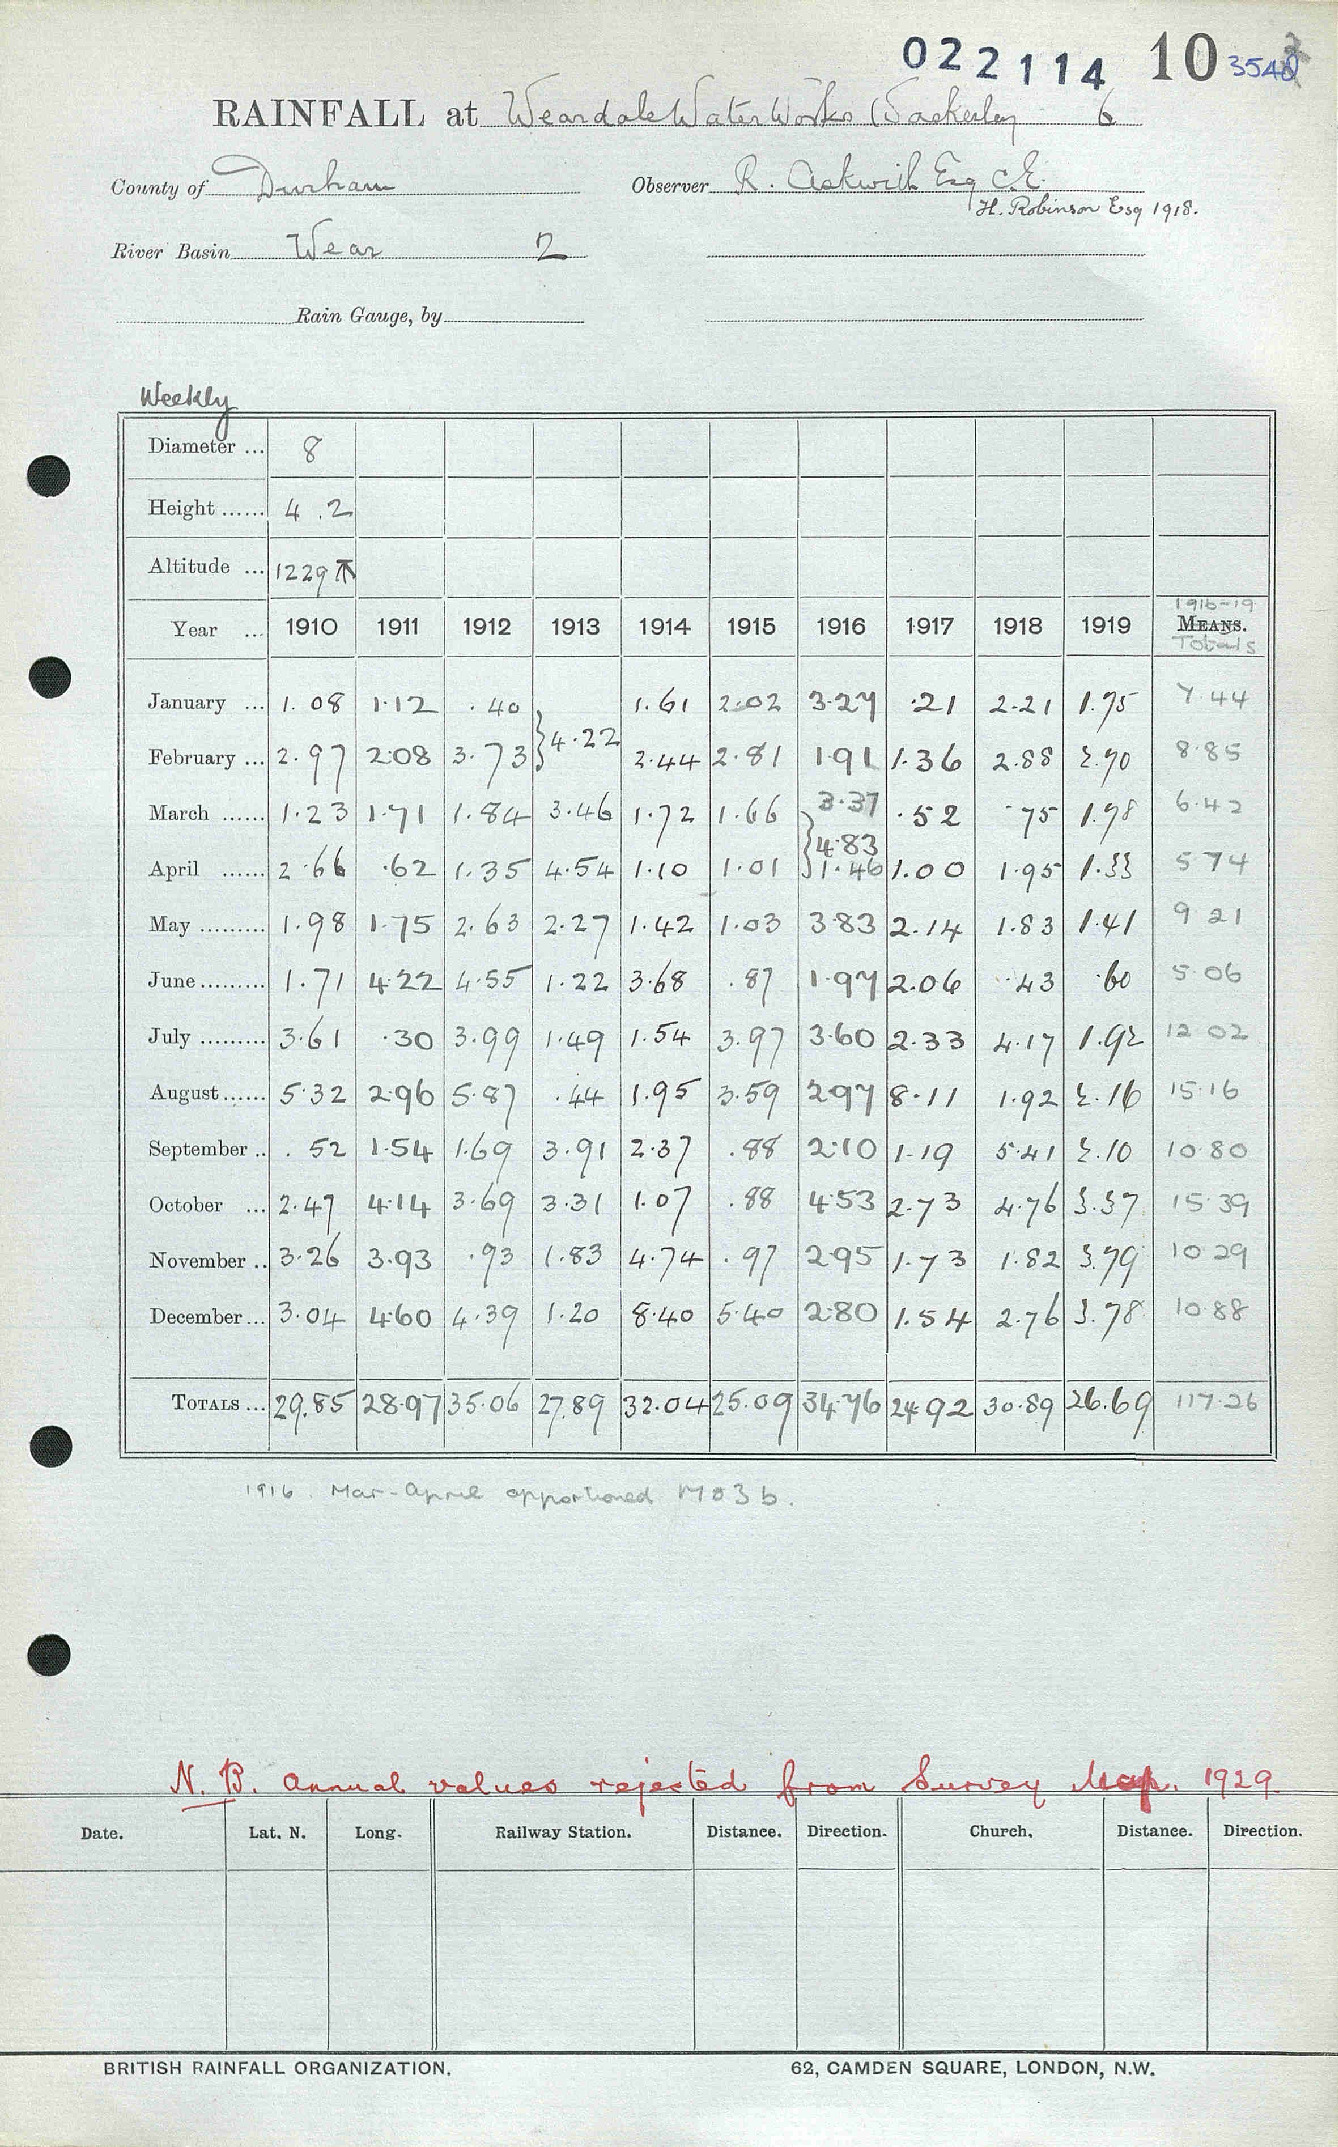 022114 10 3542
RAINFALL at Weardale Water Works (Wackerley 6
County of Durham Observer R. Askwith Esq C.E.
H. Robinson Esq 1918.
River Basin Wear 2
Rain Gauge, by
Weekly
Diameter ... 8
Height ...... 4 . 2
Altitude ... 1229
1916-19
Year ... 1910 1911 1912 1913 1914 1915 1916 1917 1918 1919 MEANS.
Totals
January ... 1.08 1.12 .40 1.61 2.02 3.27 .21 2.21 1.75 7.44
} 4.22
February ... 2.97 2.08 3.73 2.44 2.81 1.91 1.36 2.88 2.70 8.85
March ...... 1.23 1.71 1.84 3.46 1.72 1.66 3.37 .52 .75 1.78 6.42
} 4.83
April ...... 2.66 .62 1.35 4.54 1.10 1.01 1.46 1.00 1.95 1.33 5.74
May ......... 1.98 1.75 2.63 2.27 1.42 1.03 3.83 2.14 1.83 1.41 9.21
June ......... 1.71 4.22 4.55 1.22 3.68 .87 1.97 2.06 .43 .60 5.06
July ......... 3.61 .30 3.99 1.49 1.54 3.97 3.60 2.33 4.17 1.92 12.02
August ...... 5.32 2.96 5.87 .44 1.95 3.59 2.97 8.11 1.92 2.16 15.16
September .. .52 1.54 1.69 3.91 2.37 .88 2.10 1.19 5.41 2.10 10.80
October ... 2.47 4.14 3.69 3.31 1.07 .88 4.53 2.73 4.76 3.37 15.39
November .. 3.26 3.93 .93 1.83 4.74 .97 2.95 1.73 1.82 3.79 10.29
December ... 3.04 4.60 4.39 1.20 8.40 5.40 2.80 1.54 2.76 3.78 10.88
TOTALS ... 29.85 28.97 35.06 27.89 32.04 25.09 34.76 24.92 30.89 26.69 117.26
1916 Mar-April apportioned M03b.
N.B. Annual values rejected from Survey Map. 1929
Date. Lat. N. Long. Railway Station. Distance. Direction. Church. Distance. Direction.
BRITISH RAINFALL ORGANIZATION. 62, CAMDEN SQUARE, LONDON, N.W.